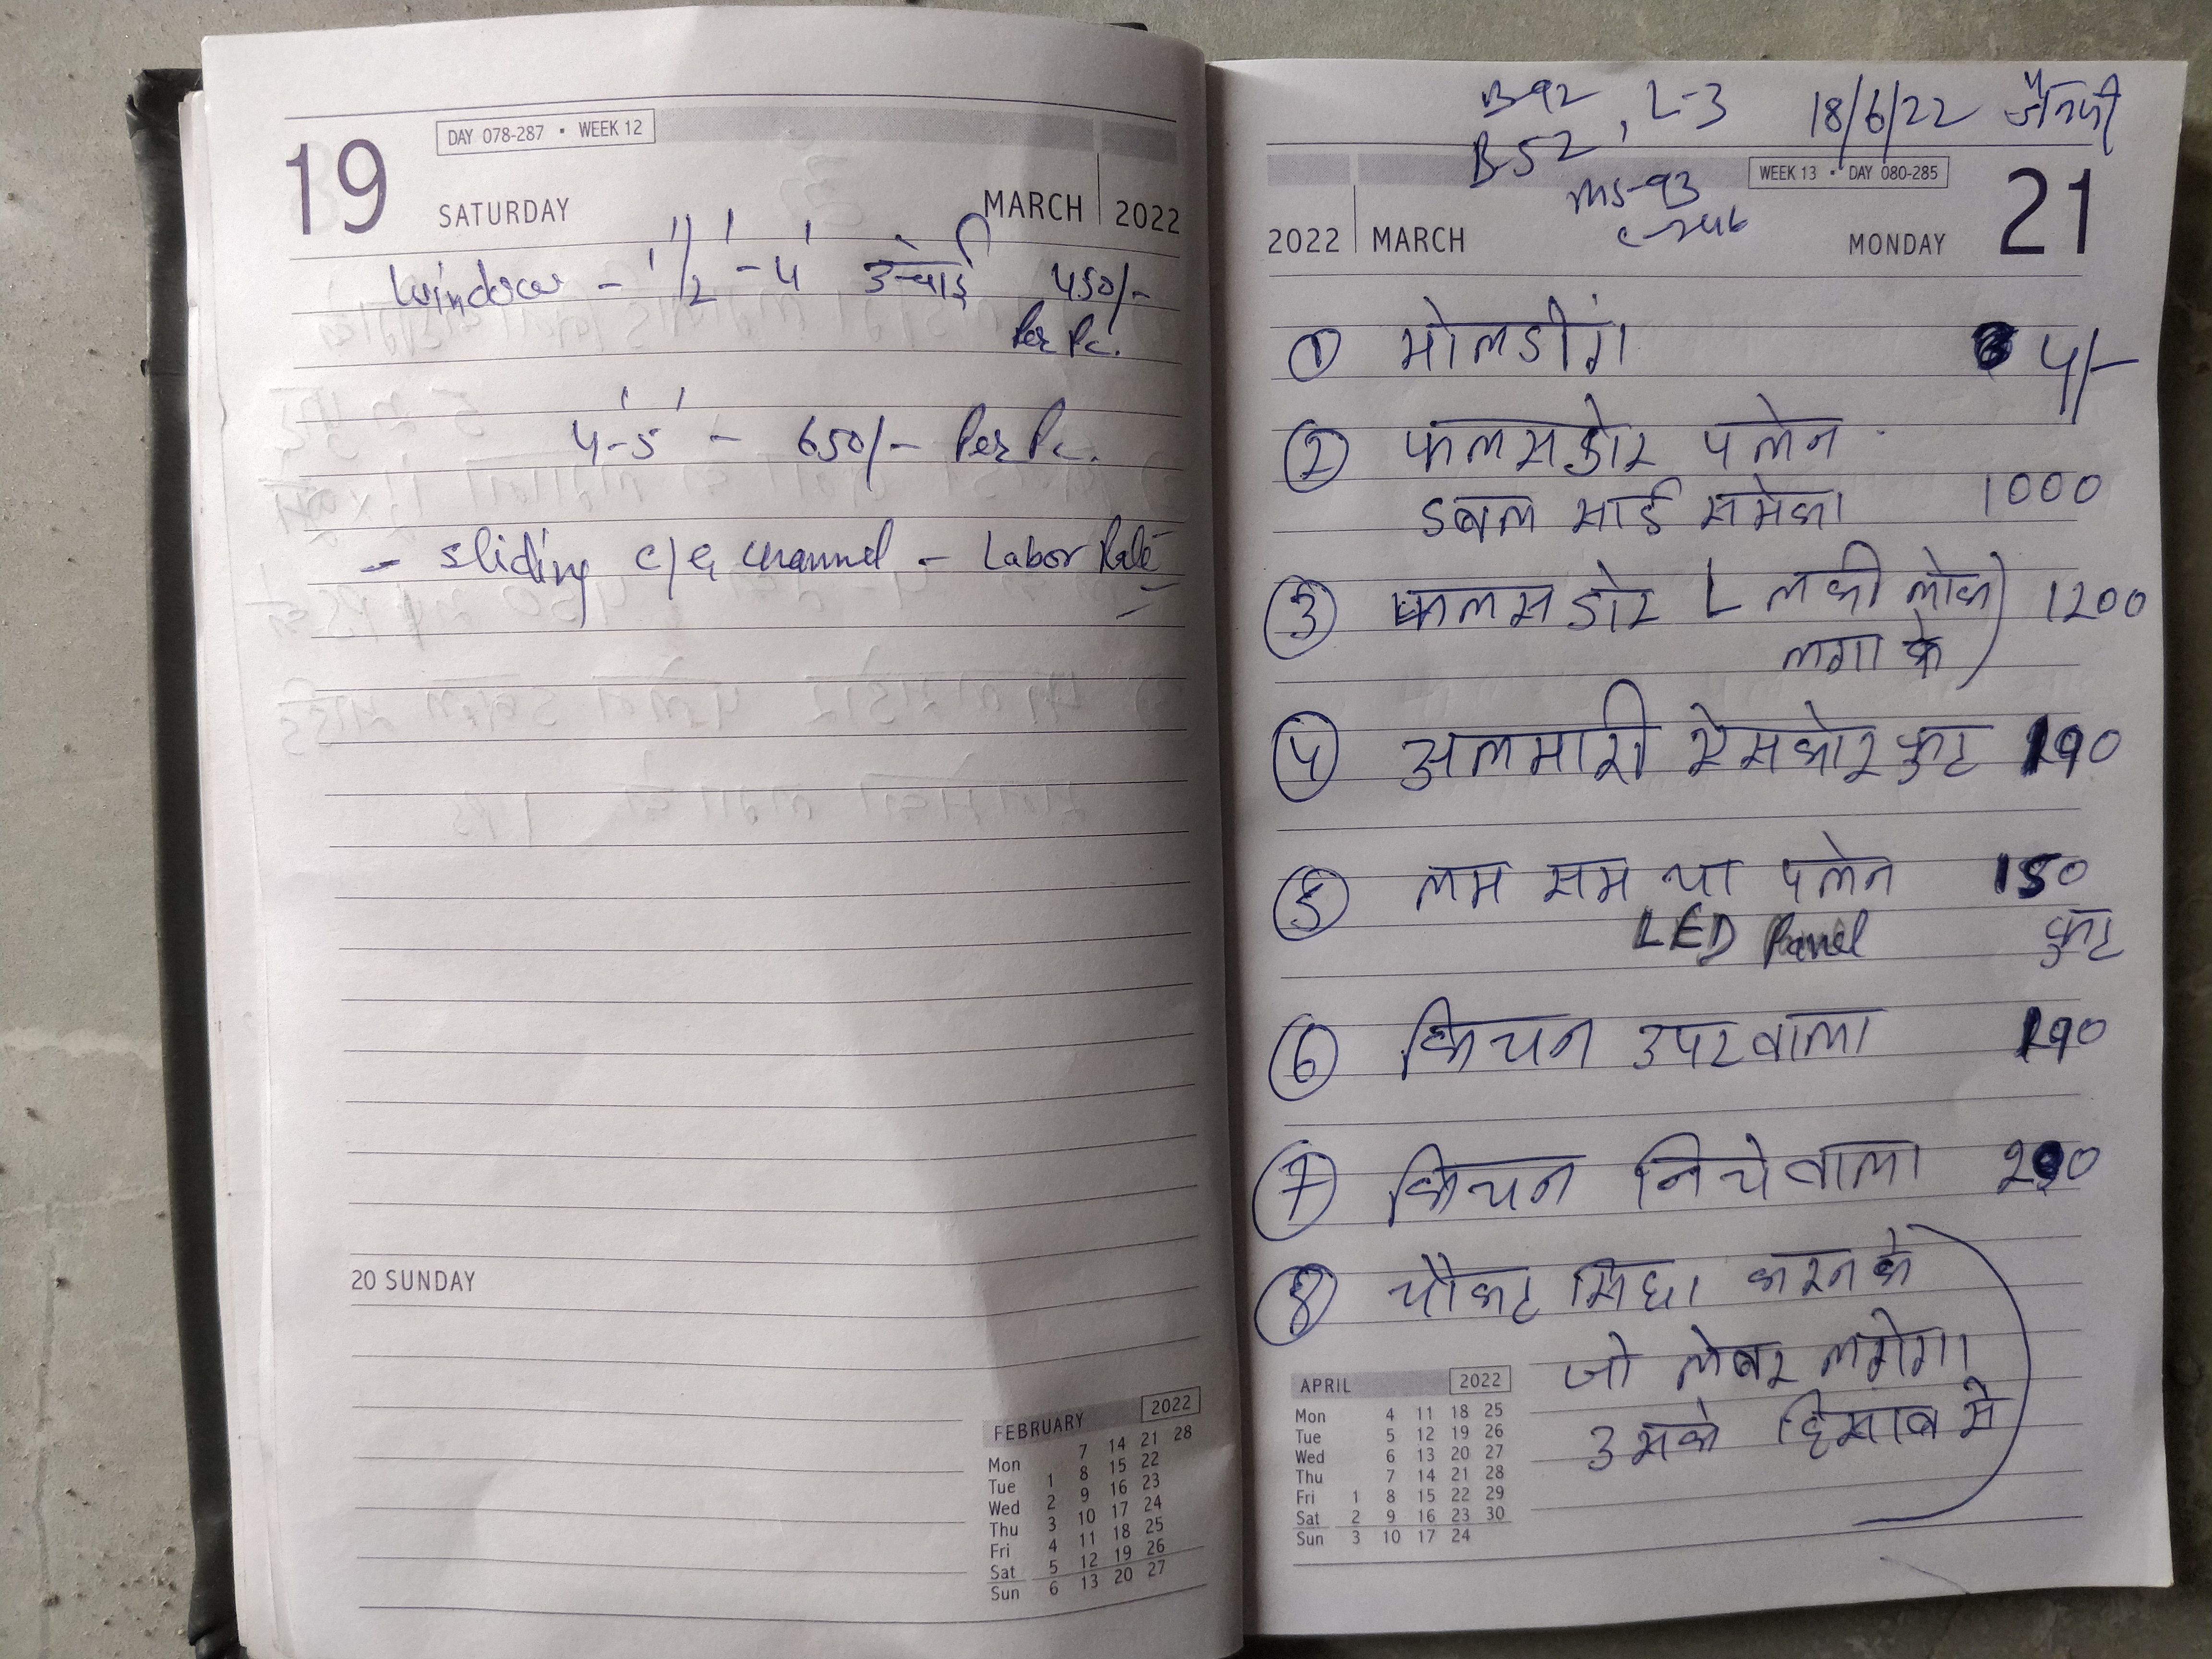 19
DAY 078-287 • WEEK 12
SATURDAY
MARCH | 2022
Window - 1 1/2' - 4' उचाई 450/-
Per Pc.
4'-5' - 650/- Per Pc.
- Sliding c/g channel - Labor Rate
20 SUNDAY
FEBRUARY 2022
Mon 7 14 21 28
Tue 1 8 15 22
Wed 2 9 16 23
Thu 3 10 17 24
Fri 4 11 18 25
Sat 5 12 19 26
Sun 6 13 20 27
B-92, L-3 18/6/22
B-52
MS-93
C-246
WEEK 13 • DAY 080-285
2022 | MARCH
MONDAY
21
① मोलडींग 5/-
② फलसडोर पलेन
डबल साईड समेका 1000
③ फलस डोर L लकी लोक
लगा के 1200
④ अलमारी ऐसकोर फुट 190
⑤ लम सम या पलेन 150
LED Panel फुट
⑥ किचन उपरवाला 190
⑦ किचन निचेवाला 200
⑧ चौकट सिधा करनके
जो लेबर लगेगा
उसके हिसाब से
APRIL 2022
Mon 4 11 18 25
Tue 5 12 19 26
Wed 6 13 20 27
Thu 7 14 21 28
Fri 1 8 15 22 29
Sat 2 9 16 23 30
Sun 3 10 17 24